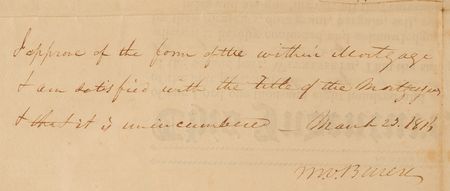 I approve of the form of the within Mortgage
& am satisfied with the title of the Mortgagor
& that it is unincumbered — March 23. 1816
MVBuren